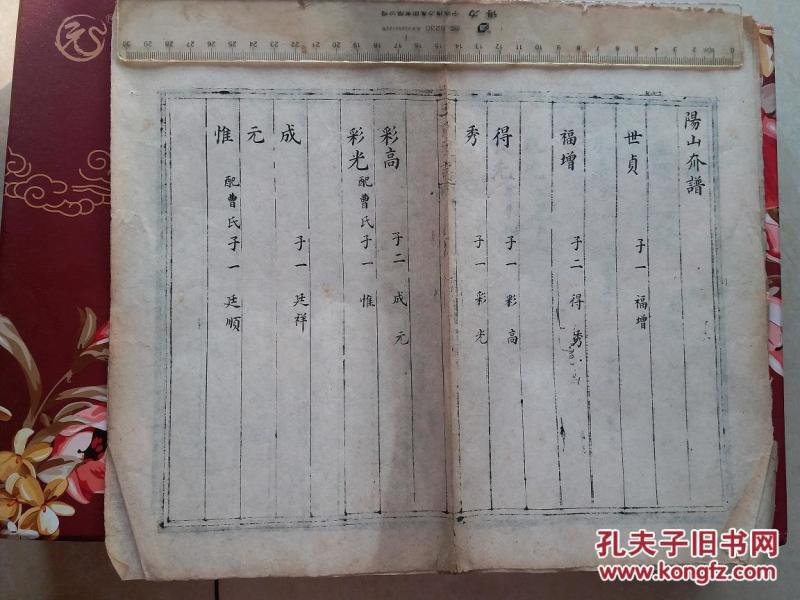 陽山夰譜
世貞 子一 福增
福增 子二 得 秀
得 子一 彩高
秀 子一 彩光
彩高 子二 成 元
彩光 配曹氏 子一 惟
成 子一 廷祥
元
惟 配曹氏 子一 廷順
孔夫子旧书网
www.kongfz.com